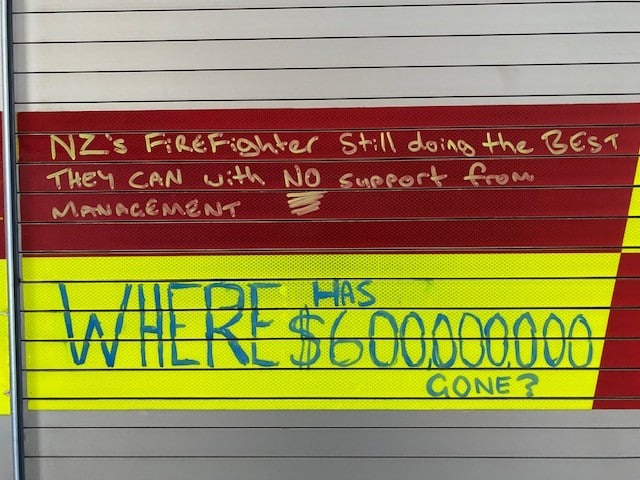 NZ's FiREFighter Still doing the BEST
THEY CAN with NO support from
MANAGEMENT
WHERE HAS
$600,000,000
GONE?